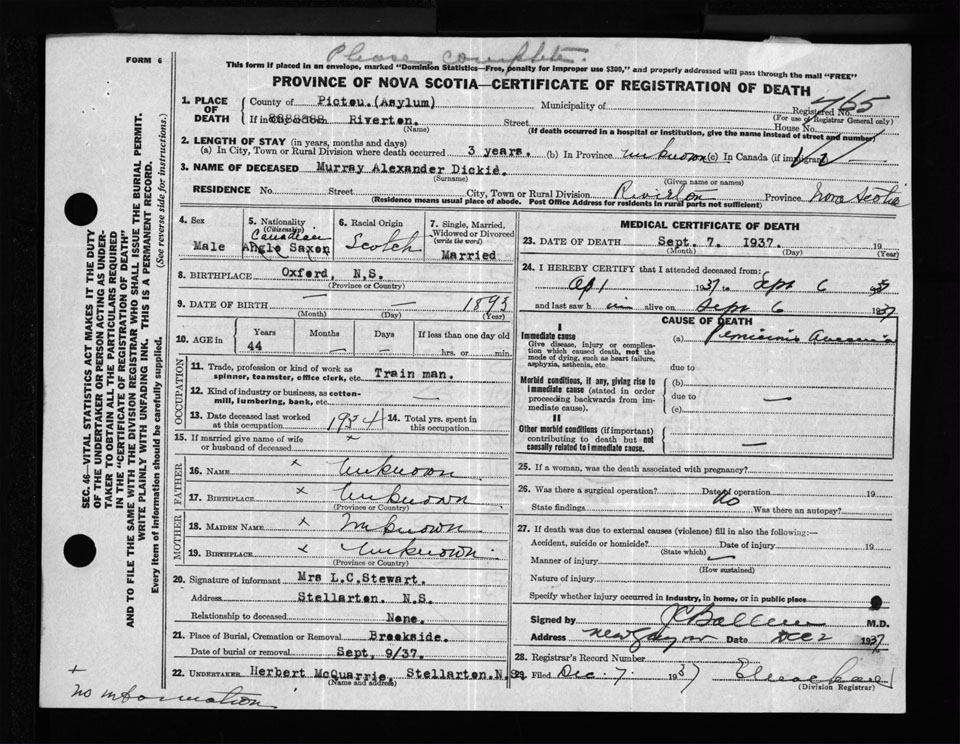 Please complete
FORM 6
This form if placed in an envelope, marked "Dominion Statistics—Free, penalty for improper use $300," and properly addressed will pass through the mail "FREE"
PROVINCE OF NOVA SCOTIA—CERTIFICATE OF REGISTRATION OF DEATH
465
1. PLACE OF DEATH
County of Pictou.(Asylum) Municipality of
Registered No.
(For use of Registrar General only)
If in Riverton. Street House No.
(Name) (If death occurred in a hospital or institution, give the name instead of street and number)
2. LENGTH OF STAY (in years, months and days)
(a) In City, Town or Rural Division where death occurred 3 years. (b) In Province unknown (c) In Canada (if immigrant)
3. NAME OF DECEASED Murray Alexander Dickie.
(Surname) (Given name or names)
RESIDENCE No. Street City, Town or Rural Division Riverton Province Nova Scotia
(Residence means usual place of abode. Post Office Address for residents in rural parts not sufficient)
4. Sex
Male
5. Nationality
(Citizenship)
Canadian
Anglo Saxon
6. Racial Origin
Scotch
7. Single, Married,
Widowed or Divorced
(write the word)
Married
8. BIRTHPLACE Oxford, N.S.
(Province or Country)
9. DATE OF BIRTH — — 1893
(Month) (Day) (Year)
10. AGE in
Years Months Days If less than one day old
44 — — hrs. or min.
OCCUPATION
11. Trade, profession or kind of work as
spinner, teamster, office clerk, etc. Train man.
12. Kind of industry or business, as cotton-
mill, lumbering, bank, etc. —
13. Date deceased last worked
at this occupation 1934
14. Total yrs. spent in
this occupation
15. If married give name of wife
or husband of deceased x
FATHER
16. NAME x Unknown
17. BIRTHPLACE x Unknown
(Province or Country)
MOTHER
18. MAIDEN NAME x Unknown
19. BIRTHPLACE x Unknown.
(Province or Country)
20. Signature of informant Mrs L.C.Stewart.
Address Stellarton. N.S.
Relationship to deceased None.
21. Place of Burial, Cremation or Removal Brookside.
Date of burial or removal Sept. 9/37.
22. UNDERTAKER Herbert McQuarrie. Stellarton.N.S.
(Name and address)
MEDICAL CERTIFICATE OF DEATH
23. DATE OF DEATH Sept. 7. 1937. 19
(Month) (Day) (Year)
24. I HEREBY CERTIFY that I attended deceased from:
Apl 1937 to Sept 6 1937
and last saw him alive on Sept 6 1937
CAUSE OF DEATH
I
Immediate cause
Give disease, injury or complica-
tion which caused death, not the
mode of dying, such as heart failure,
asphyxia, asthenia, etc.
(a) Pernicious Anaemia
due to
Morbid conditions, if any, giving rise to
immediate cause (stated in order
proceeding backwards from im-
mediate cause).
(b)
due to —
(c)
II
Other morbid conditions (if important)
contributing to death but not
causally related to immediate cause. —
25. If a woman, was the death associated with pregnancy?
26. Was there a surgical operation? Date of operation 19
no
State findings Was there an autopsy?
27. If death was due to external causes (violence) fill in also the following:—
Accident, suicide or homicide? Date of injury 19
(State which)
Manner of injury
(How sustained)
Nature of injury
Specify whether injury occurred in industry, in home, or in public place
Signed by M.D.
Address New Glasgow Date Dec 2 1937
28. Registrar's Record Number
29. Filed Dec. 7. 1937
(Division Registrar)
SEC. 46—VITAL STATISTICS ACT MAKES IT THE DUTY
OF THE UNDERTAKER OR PERSON ACTING AS UNDER-
TAKER TO OBTAIN ALL THE PARTICULARS REQUIRED
IN THE "CERTIFICATE OF REGISTRATION OF DEATH"
AND TO FILE THE SAME WITH THE DIVISION REGISTRAR WHO SHALL ISSUE THE BURIAL PERMIT.
WRITE PLAINLY WITH UNFADING INK. THIS IS A PERMANENT RECORD.
Every item of information should be carefully supplied. (See reverse side for instructions.)
+
no information